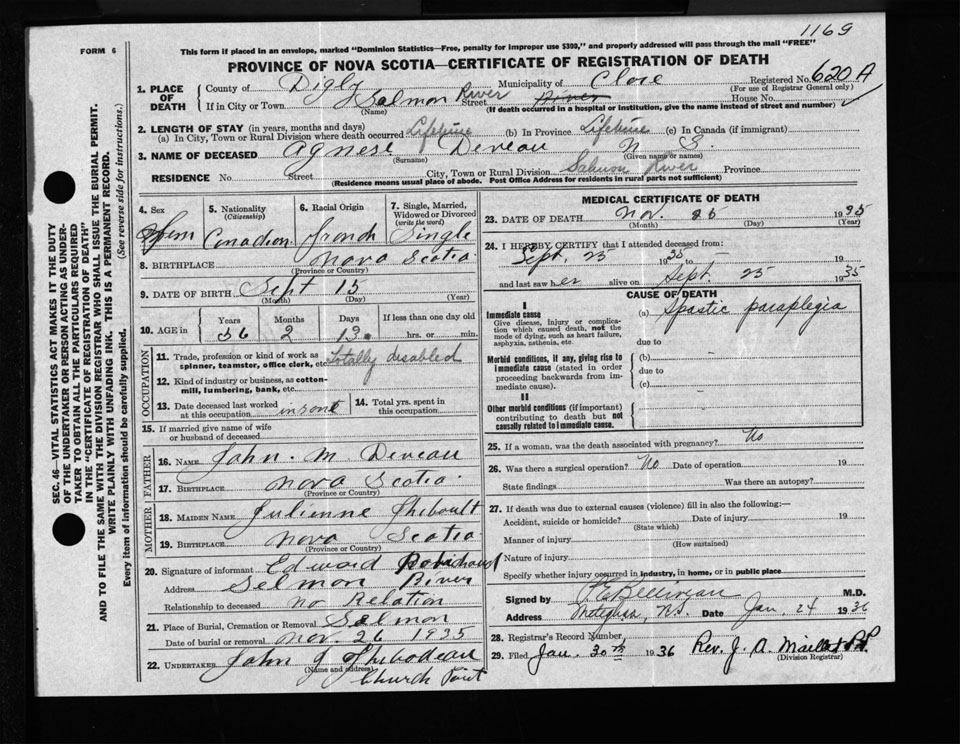 1169
FORM 6
This form if placed in an envelope, marked "Dominion Statistics—Free, penalty for improper use $300," and properly addressed will pass through the mail "FREE"
PROVINCE OF NOVA SCOTIA—CERTIFICATE OF REGISTRATION OF DEATH
1. PLACE OF DEATH
County of Digby Municipality of Clare Registered No. 620 A
(For use of Registrar General only)
If in City or Town Salmon River Street River House No.
(Name) (If death occurred in a hospital or institution, give the name instead of street and number)
2. LENGTH OF STAY (in years, months and days)
(a) In City, Town or Rural Division where death occurred Lifetime (b) In Province Lifetime (c) In Canada (if immigrant)
3. NAME OF DECEASED Agnese Deveau N. S.
(Surname) (Given name or names)
RESIDENCE No. Street City, Town or Rural Division Salmon River Province
(Residence means usual place of abode. Post Office Address for residents in rural parts not sufficient)
SEC. 46—VITAL STATISTICS ACT MAKES IT THE DUTY
OF THE UNDERTAKER OR PERSON ACTING AS UNDER-
TAKER TO OBTAIN ALL THE PARTICULARS REQUIRED
IN THE "CERTIFICATE OF REGISTRATION OF DEATH"
AND TO FILE THE SAME WITH THE DIVISION REGISTRAR WHO SHALL ISSUE THE BURIAL PERMIT.
WRITE PLAINLY WITH UNFADING INK. THIS IS A PERMANENT RECORD.
Every item of information should be carefully supplied. (See reverse side for instructions.)
4. Sex Fem
5. Nationality (Citizenship) Canadian
6. Racial Origin French
7. Single, Married, Widowed or Divorced (write the word) Single
8. BIRTHPLACE Nova Scotia
(Province or Country)
9. DATE OF BIRTH Sept 15
(Month) (Day) (Year)
10. AGE in Years Months Days If less than one day old
56 2 13 hrs. or min.
OCCUPATION
11. Trade, profession or kind of work as spinner, teamster, office clerk, etc. Totally disabled
12. Kind of industry or business, as cotton-mill, lumbering, bank, etc.
13. Date deceased last worked at this occupation
14. Total yrs. spent in this occupation
15. If married give name of wife or husband of deceased
FATHER
16. NAME John. M. Deveau
17. BIRTHPLACE Nova Scotia
(Province or Country)
MOTHER
18. MAIDEN NAME Julienne Thiboult
19. BIRTHPLACE Nova Scotia
(Province or Country)
20. Signature of informant Edward Robichaud
Address Salmon River
Relationship to deceased no Relation
21. Place of Burial, Cremation or Removal Salmon
Date of burial or removal Nov. 26 1935
22. UNDERTAKER John J Thibodeau
(Name and address) Church Point
MEDICAL CERTIFICATE OF DEATH
23. DATE OF DEATH Nov. 25 1935
(Month) (Day) (Year)
24. I HEREBY CERTIFY that I attended deceased from:
Sept. 25 1935 to 19
and last saw her alive on Sept. 25 1935
CAUSE OF DEATH
I
Immediate cause (a) Spastic paraplegia
Give disease, injury or complication which caused death, not the mode of dying, such as heart failure, asphyxia, asthenia, etc.
due to
Morbid conditions, if any, giving rise to immediate cause (stated in order proceeding backwards from immediate cause).
(b)
due to
(c)
II
Other morbid conditions (if important) contributing to death but not causally related to immediate cause.
25. If a woman, was the death associated with pregnancy? No
26. Was there a surgical operation? No Date of operation 19
State findings Was there an autopsy?
27. If death was due to external causes (violence) fill in also the following:—
Accident, suicide or homicide? Date of injury 19
(State which)
Manner of injury
(How sustained)
Nature of injury
Specify whether injury occurred in industry, in home, or in public place
Signed by M.D.
Address Meteghan, N.S. Date Jan. 24 1936
28. Registrar's Record Number
29. Filed Jan. 30th 1936 Rev. J. A. Maillet P.P.
(Division Registrar)